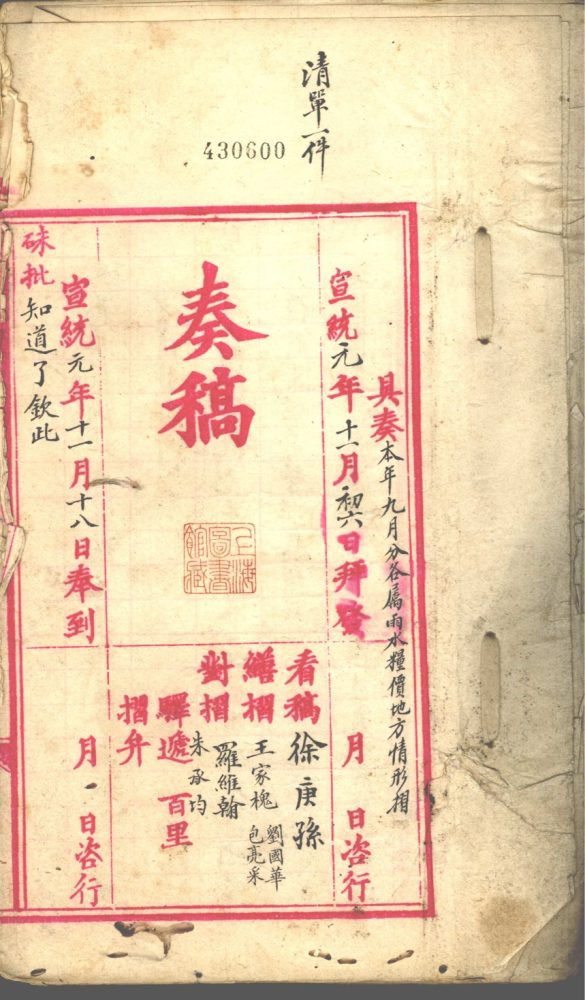 清單一件
430600
具奏本年九月分各屬雨水糧價地方情形摺
宣統元年十一月初六日拜發
月 日咨行
奏稿
上海
圖書
館藏
看稿 徐庚孫
繕摺 王家槐 劉國華 包亮采
對摺 羅維翰 朱承均
驛遞 百里
摺弁
宣統元年十一月十八日奉到
月 日咨行
硃批 知道了欽此